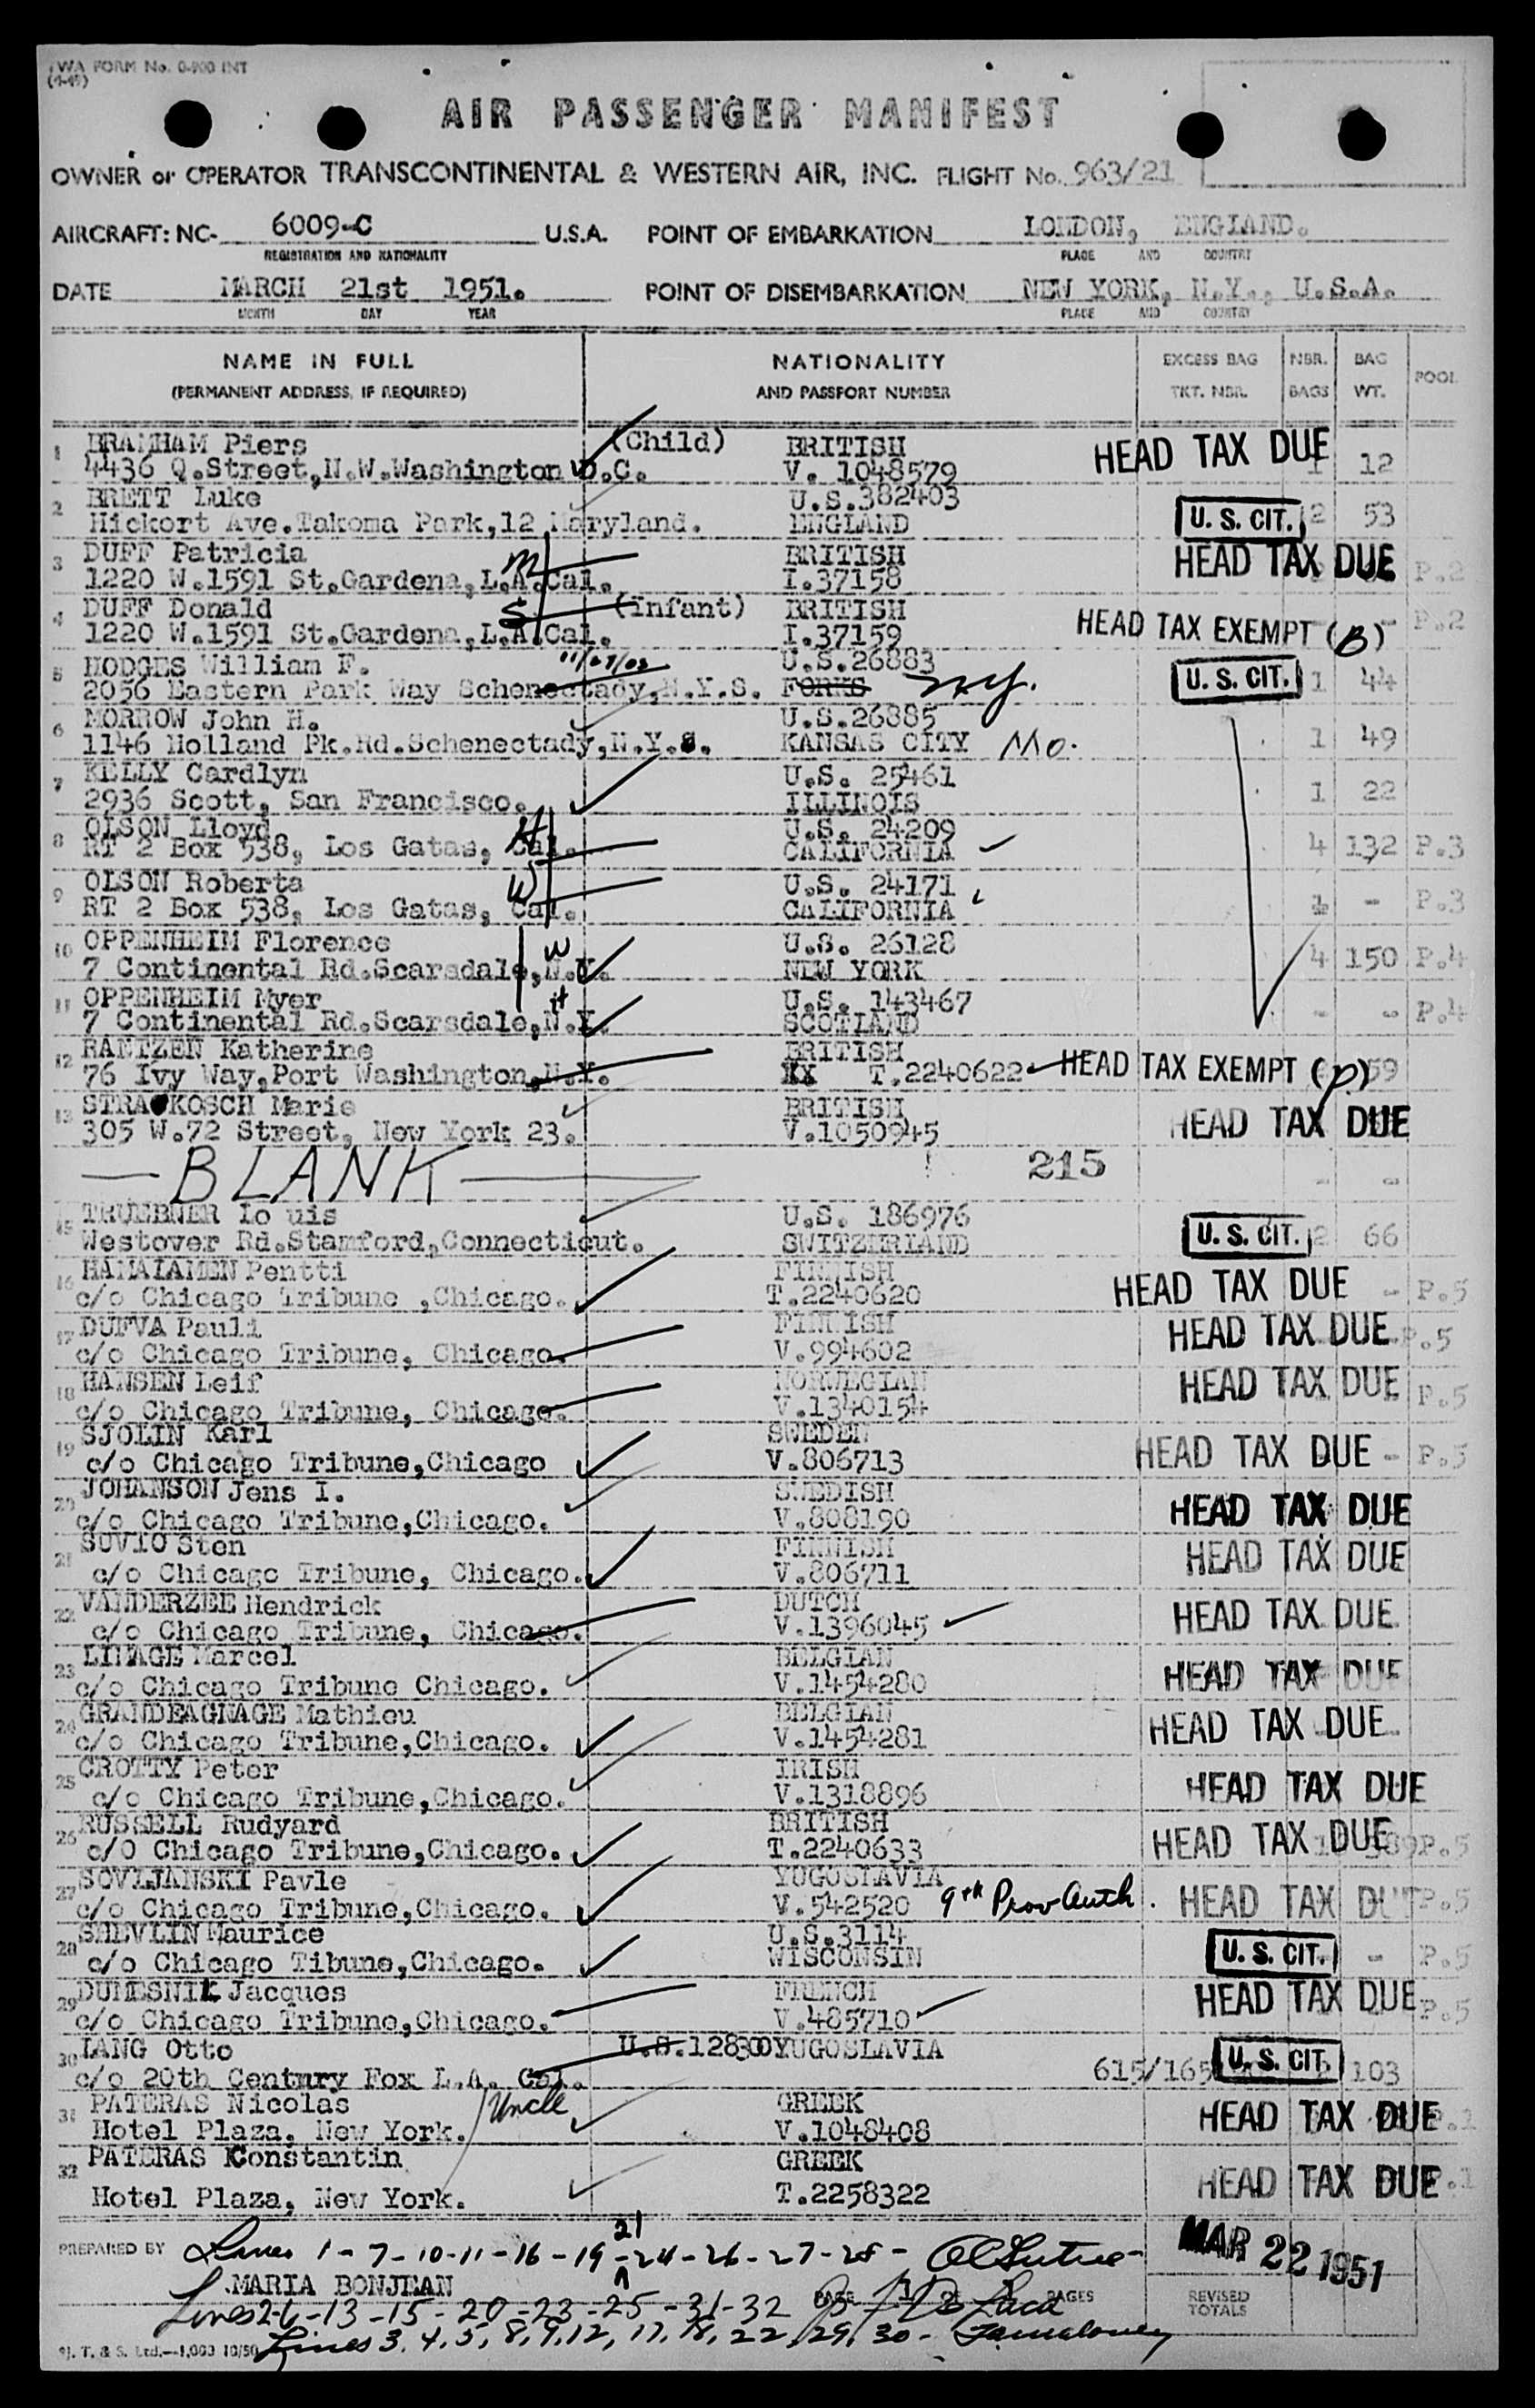 TWA FORM No. 0-900 INT
(4-49)
AIR PASSENGER MANIFEST
OWNER or OPERATOR TRANSCONTINENTAL & WESTERN AIR, INC. FLIGHT No. 963/21
AIRCRAFT: NC- 6009-C U.S.A. POINT OF EMBARKATION LONDON, ENGLAND.
REGISTRATION AND NATIONALITY PLACE AND COUNTRY
DATE MARCH 21st 1951. POINT OF DISEMBARKATION NEW YORK, N.Y., U.S.A.
MONTH DAY YEAR PLACE AND COUNTRY
NAME IN FULL NATIONALITY EXCESS BAG NBR. BAG POOL
(PERMANENT ADDRESS, IF REQUIRED) AND PASSPORT NUMBER TKT. NBR. BAGS WT.
1 BRAMHAM Piers (Child) BRITISH HEAD TAX DUE
4436 Q.Street,N.W.Washington D.C. V. 1048579 1 12
2 BRETT Luke U.S.382403
Hickort Ave.Takoma Park,12 Maryland. ENGLAND U. S. CIT. 2 53
3 DUFF Patricia M BRITISH HEAD TAX DUE
1220 W.1591 St.Gardena,L.A.Cal. I.37158 P.2
4 DUFF Donald S (Infant) BRITISH
1220 W.1591 St.Gardena,L.A.Cal. I.37159 HEAD TAX EXEMPT (B) - P.2
5 HODGES William F. 11/27/02 U.S.26883
2056 Eastern Park Way Schenectady,N.Y.S. N.Y. U. S. CIT. 1 44
6 MORROW John H. U.S.26885
1146 Holland Pk.Rd.Schenectady,N.Y.S. KANSAS CITY Mo. 1 49
7 KELLY Cardlyn U.S. 25461
2936 Scott, San Francisco. ILLINOIS 1 22
8 OLSON Lloyd H U.S. 24209
RT 2 Box 538, Los Gatas, Cal. CALIFORNIA 4 132 P.3
9 OLSON Roberta W U.S. 24171
RT 2 Box 538, Los Gatas, Cal. CALIFORNIA - P.3
10 OPPENHEIM Florence W U.S. 26128
7 Continental Rd.Scarsdale,N.Y. NEW YORK 4 150 P.4
11 OPPENHEIM Myer H U.S. 143467
7 Continental Rd.Scarsdale,N.Y. SCOTLAND - - P.4
12 RANTZEN Katherine BRITISH
76 Ivy Way,Port Washington,N.Y. XX T.2240622 HEAD TAX EXEMPT (P) 59
13 STRAKOSCH Marie BRITISH HEAD TAX DUE
305 W.72 Street, New York 23. V.1050945
— BLANK — 215 - -
15 TRUEBNER Lo uis U.S. 186976
Westover Rd.Stamford,Connecticut. SWITZERLAND U. S. CIT. 2 66
16 HAMALAMEN Pentti FINNISH HEAD TAX DUE
c/o Chicago Tribune ,Chicago. T.2240620 - P.5
17 DUFVA Pauli FINNISH HEAD TAX DUE
c/o Chicago Tribune, Chicago. V.994602 P.5
18 HANSEN Leif NORWEGIAN HEAD TAX DUE
c/o Chicago Tribune, Chicago. V.1340154 P.5
19 SJOLIN Karl SWEDEN
c/o Chicago Tribune,Chicago V.806713 HEAD TAX DUE - P.5
20 JOHANSON Jens I. SWEDISH HEAD TAX DUE
c/o Chicago Tribune,Chicago. V.808190
21 SUVIO Sten FINNISH HEAD TAX DUE
c/o Chicago Tribune, Chicago. V.806711
22 VANDERZEE Hendrick DUTCH HEAD TAX DUE
c/o Chicago Tribune, Chicago. V.1396045
23 LIMAGE Marcel BELGIAN HEAD TAX DUE
c/o Chicago Tribune Chicago. V.1454280
24 GRANDEAGNAGE Mathieu BELGIAN HEAD TAX DUE
c/o Chicago Tribune,Chicago. V.1454281
25 CROTTY Peter IRISH HEAD TAX DUE
c/o Chicago Tribune,Chicago. V.1318896
26 RUSSELL Rudyard BRITISH HEAD TAX DUE
c/O Chicago Tribune,Chicago. T.2240633 P.5
27 SOVLJANSKI Pavle YUGOSLAVIA
c/o Chicago Tribune,Chicago. V.542520 9th Prov Auth. HEAD TAX DUE P.5
28 SHEVLIN Maurice U.S.3114
c/o Chicago Tibune,Chicago. WISCONSIN U. S. CIT. - P.5
29 DUMESNIL Jacques FRENCH HEAD TAX DUE
c/o Chicago Tribune,Chicago. V.485710 P.5
30 LANG Otto U.S.12830 YUGOSLAVIA
c/o 20th Century Fox L.A. Cal. 615/165 U. S. CIT. 103
31 PATERAS Nicolas Uncle GREEK HEAD TAX DUE
Hotel Plaza, New York. V.1048408 P.1
32 PATERAS Konstantin GREEK
Hotel Plaza, New York. T.2258322 HEAD TAX DUE P.1
PREPARED BY Lines 1-7-10-11-16-19-21-24-26-27-28- MAR 22 1951
MARIA BONJEAN PAGE 1 PAGES REVISED TOTALS
Lines 2-6-13-15-20-23-25-31-32
Lines 3, 4, 5, 8, 9, 12, 17, 18, 22, 29, 30-